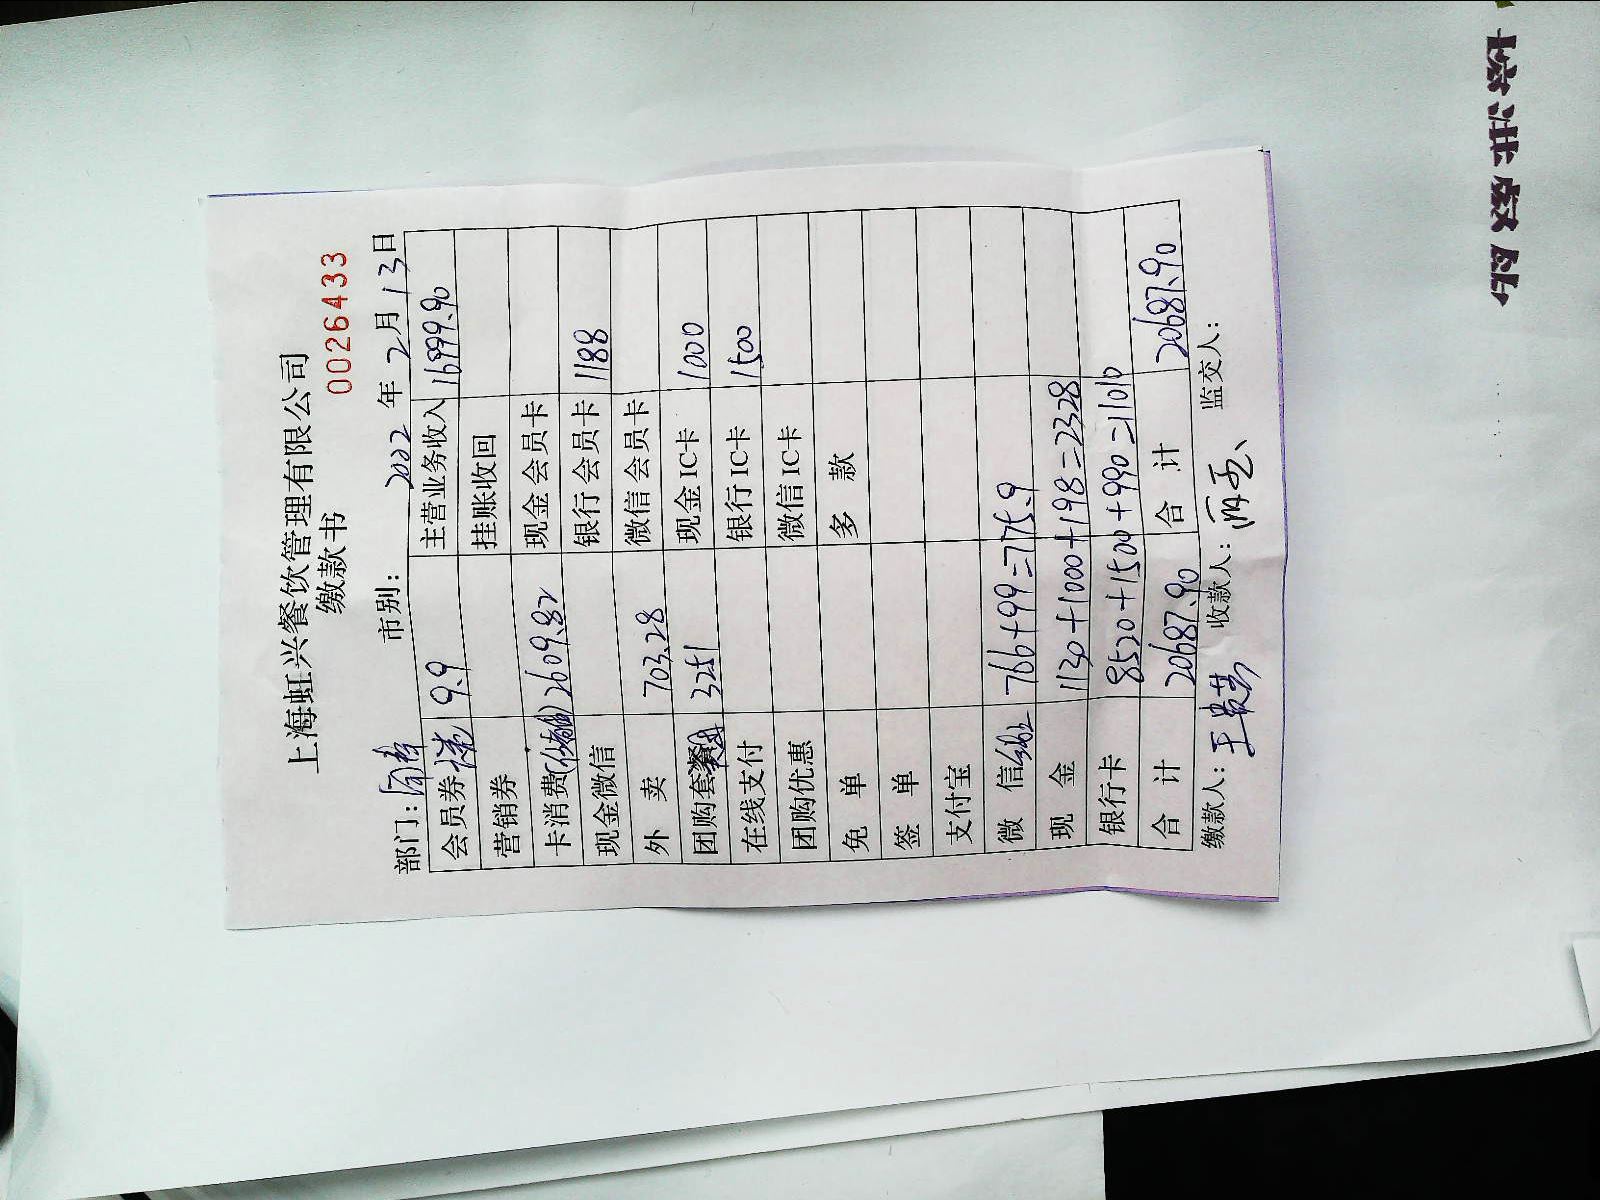 上海虹兴餐饮管理有限公司
缴款书
0026433
部门: 市别: 2022 年 2 月 13 日
会员券 9.9 主营业务收入 16999.90
营销券 挂账收回
卡消费 2609.82 现金会员卡
现金微信 银行会员卡 1188
外 卖 703.28 微信会员卡
团购套餐 3251 现金IC卡 1000
在线支付 银行IC卡 1500
团购优惠 微信IC卡
免 单 多 款
签 单
支付宝
微 信 766+99=775.9
现 金 1130+1000+198=2328
银行卡 8520+1500+990=11010
合 计 20687.90 合 计 20687.90
缴款人: 收款人: 监交人: